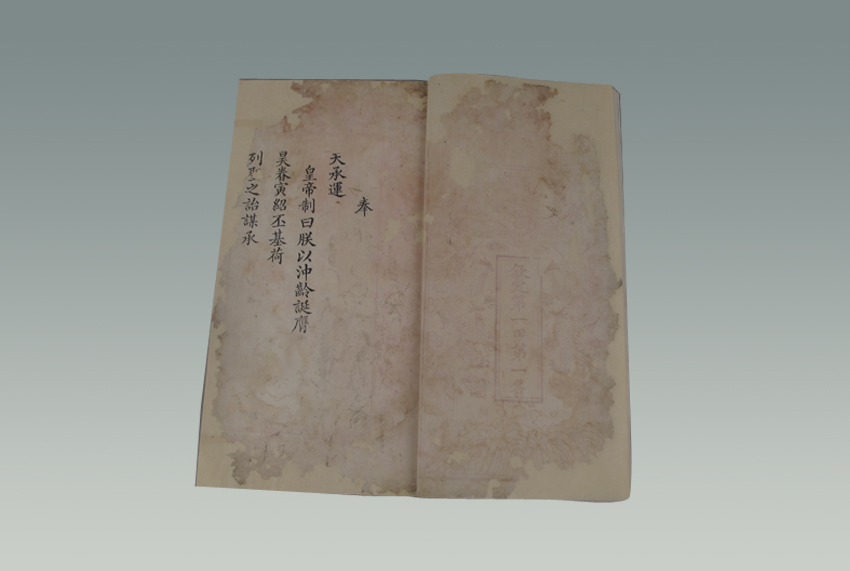 奉
天承運
皇帝制曰朕以沖齡誕膺
昊眷寅紹丕基荷
列聖之詒謀承
第一甲第一名